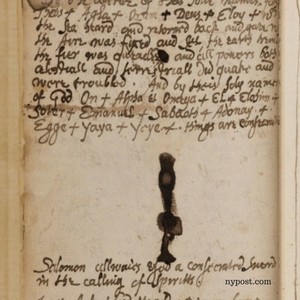 of the
Theos + Agla + Oron + Deus + Eloy +
the Sea heard and retorned back and gave
the fire was fixed and yet the earth
the fier was and all powers both
celestiall and terrestriall did quake and
were troubled And by these holy names
of God On + Alpha & Omega + El + Elohim +
Soter + Emanuel + Sabaoth + Adonay +
Egge + Yaya + Yeye + things are consecrate
Solomon allwaies used a consecrated sword
in the calling of Spirritts
nypost.com